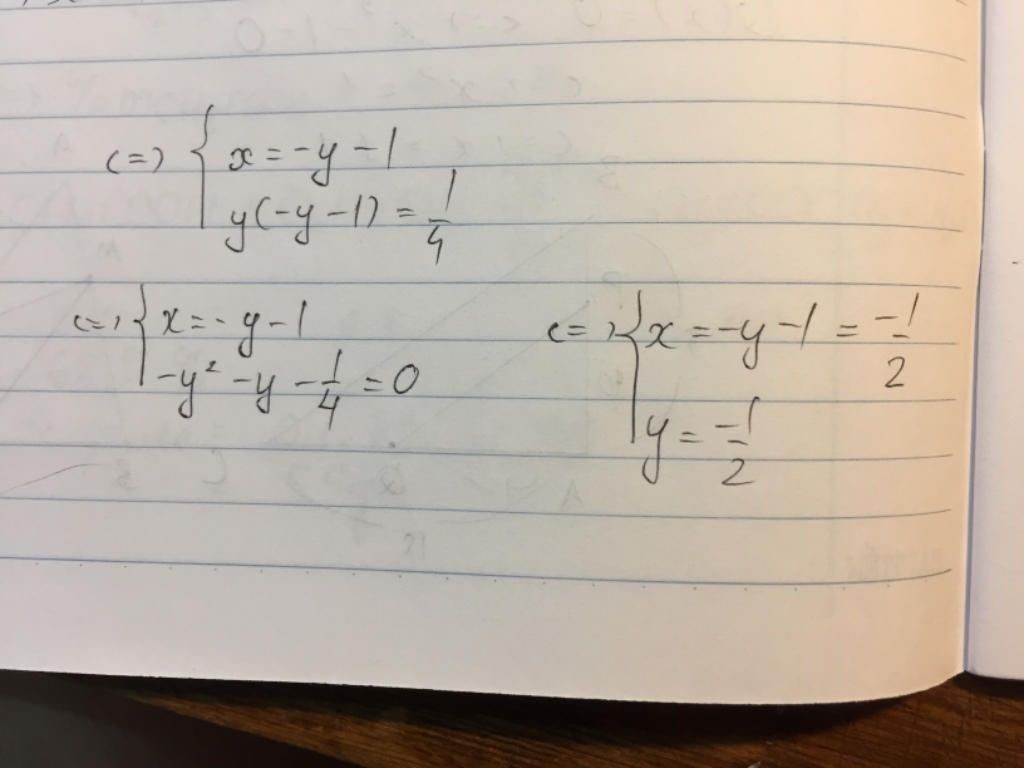 (=) { x = -y - 1
y(-y-1) = 1/4
(=) { x = -y - 1
-y² - y - 1/4 = 0
(=) { x = -y - 1 = -1/2
y = -1/2